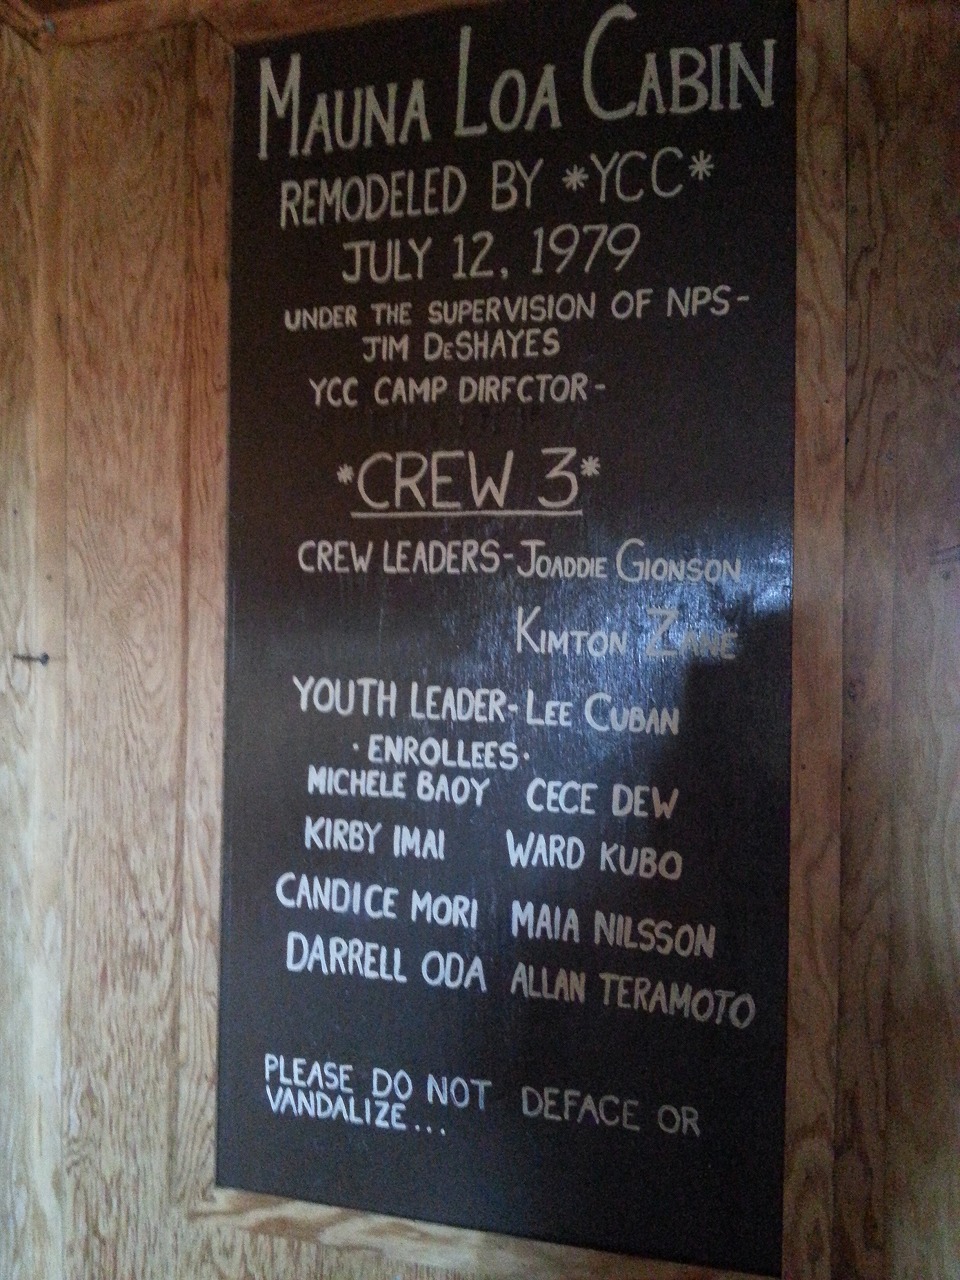 MAUNA LOA CABIN
REMODELED BY *YCC*
JULY 12, 1979
UNDER THE SUPERVISION OF NPS-
JIM DeSHAYES
YCC CAMP DIRFCTOR-
*CREW 3*
CREW LEADERS- JOADDIE GIONSON
KIMTON ZANE
YOUTH LEADER- LEE CUBAN
· ENROLLEES ·
MICHELE BAOY CECE DEW
KIRBY IMAI WARD KUBO
CANDICE MORI MAIA NILSSON
DARRELL ODA ALLAN TERAMOTO
PLEASE DO NOT DEFACE OR
VANDALIZE...